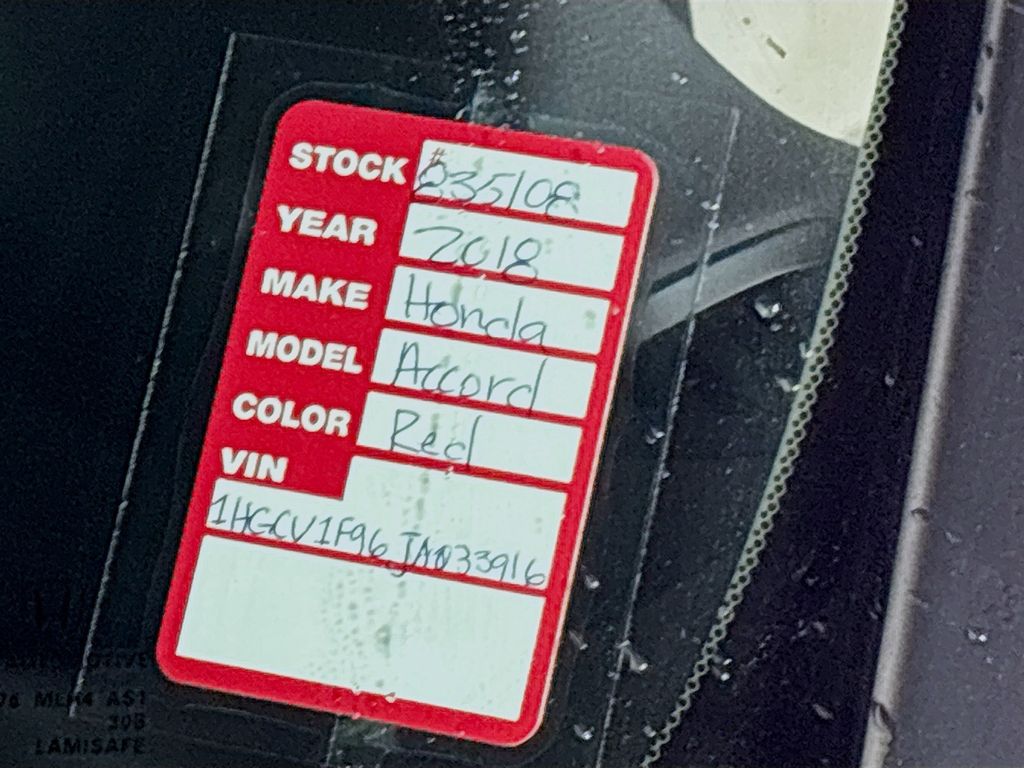 STOCK #835108
YEAR 2018
MAKE Honda
MODEL Accord
COLOR Red
VIN
1HGCV1F96JA033916
AST
LAMISAFE